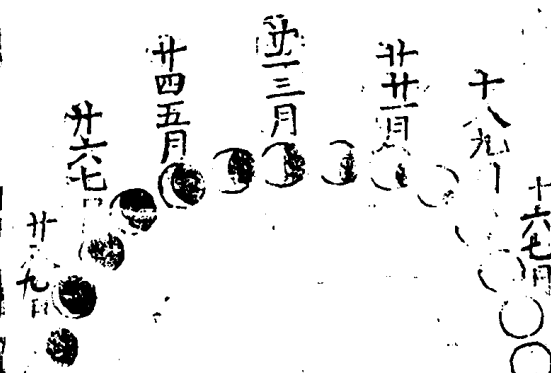 十六七月
十八九月
廿廿一月
廿二三月
廿四五月
廿六七月
廿八九月